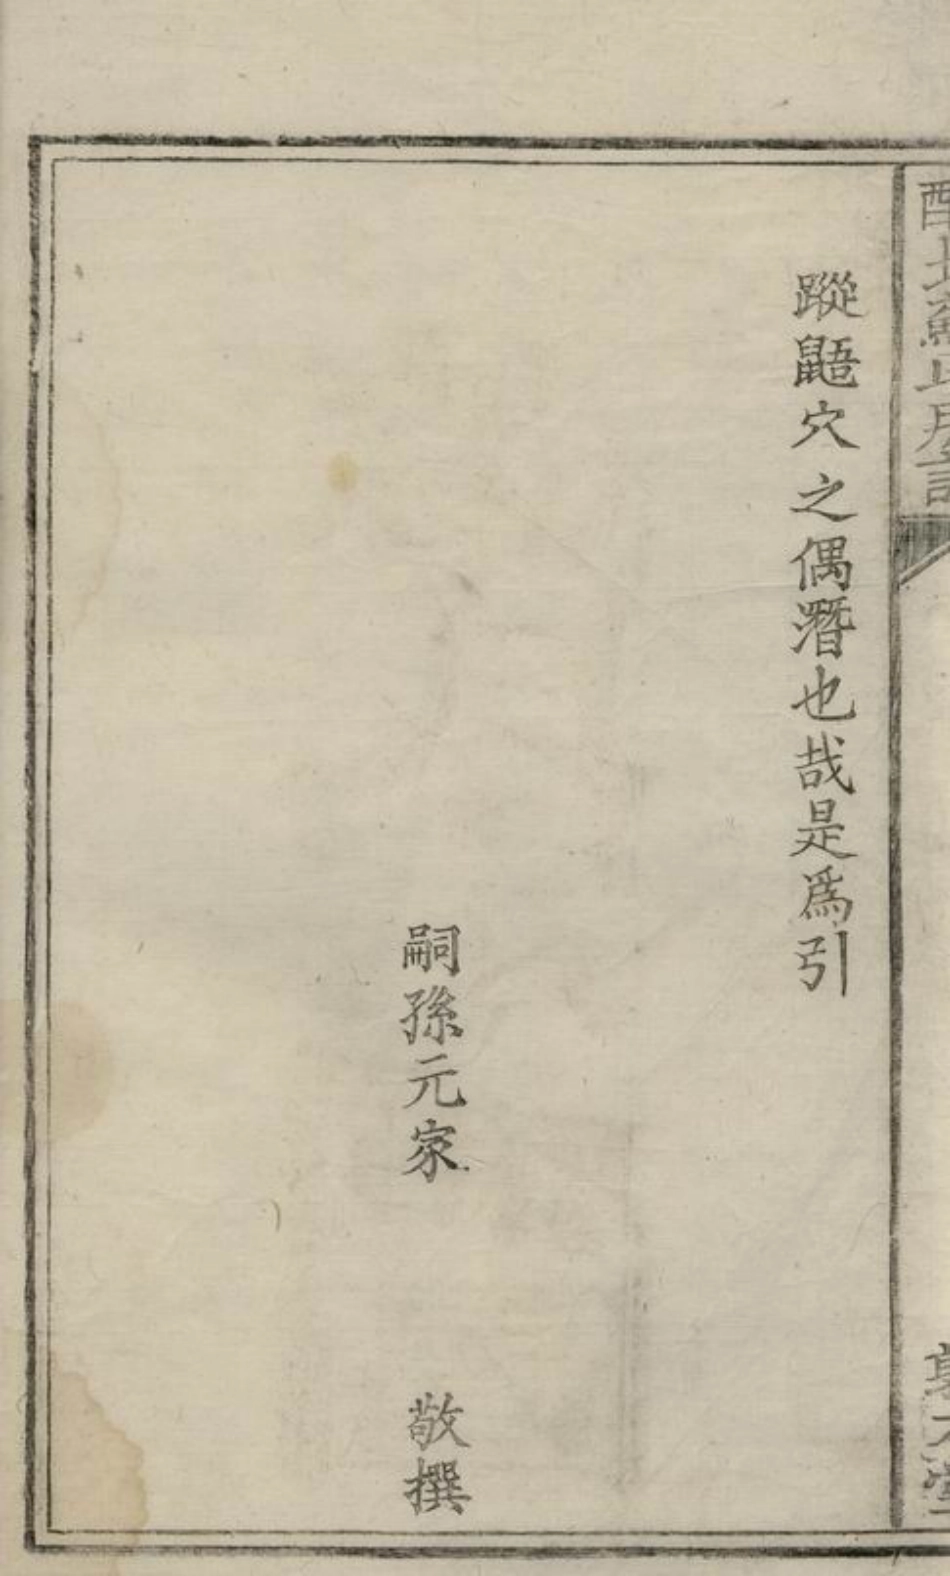 蹤鼯穴之偶潛也哉是爲引
嗣孫元家 敬撰